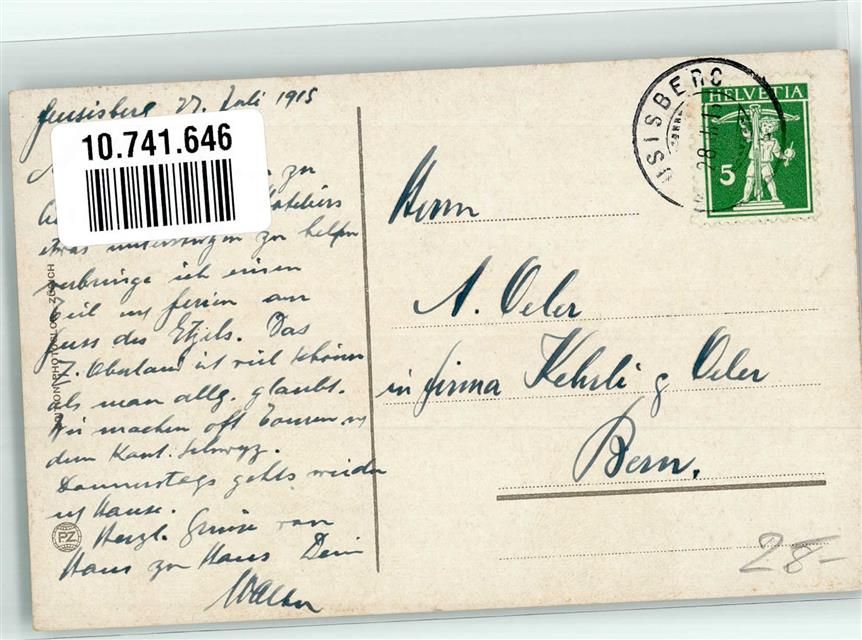 Feusisberg 27. Juli 1915
10.741.646
zu
etwas zu helfen
verbringe ich einen
Teil m/ ferien am
fuss des Etzels. Das
Z. Oberland ist viel schöner
als man allg. glaubt.
Wir machen oft Touren
dem Kant. Schwyz.
Donnerstags gehts wieder
n/ Hause.
Herzl. Grüsse von
Haus zu Haus Dein
Walter
PHOTOGLOB ZÜRICH
PZ
USISBERG
HELVETIA
5
Herrn
A. Oeler
in firma Kehrli & Oeler
Bern.
28-